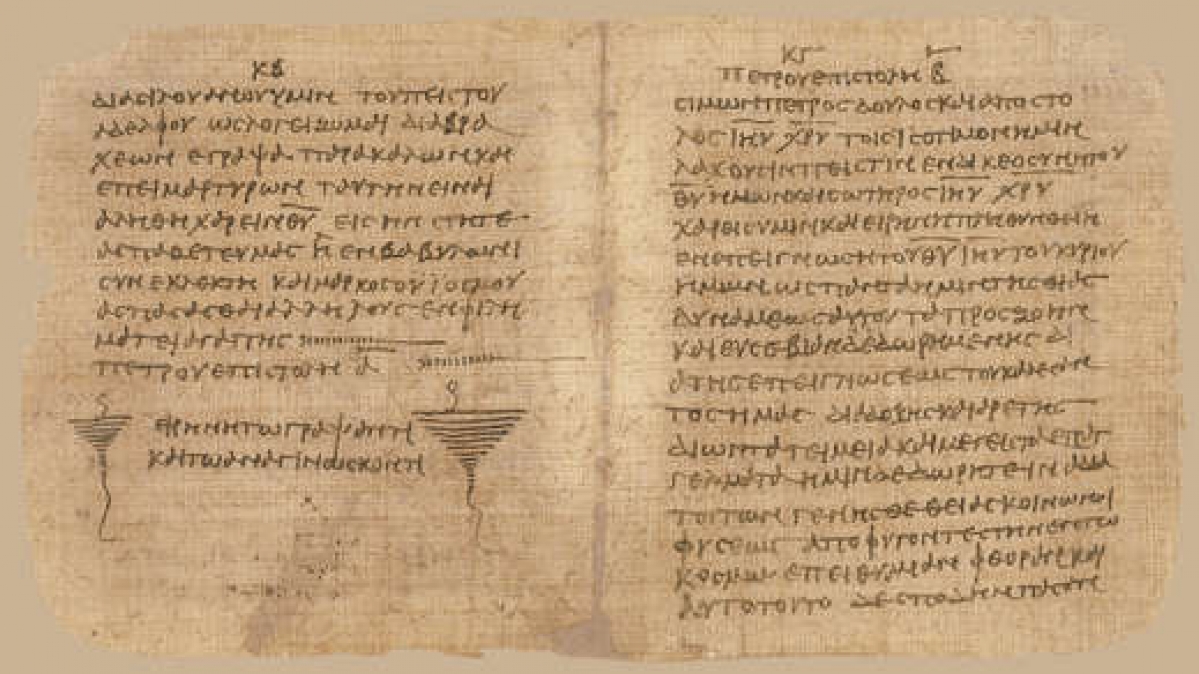 ΚΒ
ΔΙΑ ΣΙΛΟΥΑΝΟΥ ΥΜΙΝ ΤΟΥ ΠΕΙΣΤΟΥ
ΑΔΕΛΦΟΥ ΩΣ ΛΟΓΕΙΖΟΜΑΙ ΔΙΑ ΒΡΑ
ΧΕΩΝ ΕΓΡΑΨΑ ΠΑΡΑΚΑΛΩΝ ΚΑΙ
ΕΠΕΙΜΑΡΤΥΡΩΝ ΤΑΥΤΗΝ ΕΙΝΑΙ
ΑΛΗΘΗ ΧΑΡΕΙΝ ΘΥ ΕΙΣ ΗΝ ΣΤΗΤΕ
ΑΣΠΑΖΕΤΕ ΥΜΑΣ Η ΕΝ ΒΑΒΥΛΩΝΙ
ΣΥΝΕΚΛΕΚΤΗ ΚΑΙ ΜΑΡΚΟΣ Ο ΥΪΟΣ ΜΟΥ
ΑΣΠΑΣΑΣΘΑΙ ΑΛΛΗΛΟΥΣ ΕΝ ΦΙΛΗ
ΜΑΤΕΙ ΑΓΑΠΗΣ
ΠΕΤΡΟΥ ΕΠΙΣΤΩΛΗ Α
ΕΙΡΗΝΗ ΤΩ ΓΡΑΨΑΝΤΙ
ΚΑΙ ΤΩ ΑΝΑΓΙΝΩΣΚΟΝΤΙ
ΚΓ
ΠΕΤΡΟΥ ΕΠΙΣΤΟΛΗ Β
ΣΙΜΩΝ ΠΕΤΡΟΣ ΔΟΥΛΟΣ ΚΑΙ ΑΠΟΣΤΟ
ΛΟΣ ΙΗΥ ΧΡΥ ΤΟΙΣ ΙΣΟΤΙΜΟΝ ΗΜΙΝ
ΛΑΧΟΥΣΙΝ ΠΕΙΣΤΙΝ ΕΝ ΔΙΚΕΟΣΥΝΗ ΤΟΥ
ΘΥ ΗΜΩΝ ΚΑΙ ΣΩΤΗΡΟΣ ΙΗΥ ΧΡΥ
ΧΑΡΙΣ ΥΜΙΝ ΚΑΙ ΕΙΡΗΝΗ ΠΛΗΘΥΝΘΕΙΗ
ΕΝ ΕΠΕΙΓΝΩΣΗ ΤΟΥ ΘΥ ΙΗΥ ΤΟΥ ΚΥΡΙΟΥ
ΗΜΩΝ ΩΣ ΠΑΝΤΑ ΗΜΙΝ ΤΗΣ ΘΙΑΣ
ΔΥΝΑΜΕΩΣ ΑΥΤΟΥ ΤΑ ΠΡΟΣ ΖΩΗΝ
ΚΑΙ ΕΥΣΕΒΙΑΝ ΔΕΔΩΡΗΜΕΝΗΣ ΔΙ
Α ΤΗΣ ΕΠΕΙΓΝΩΣΕΩΣ ΤΟΥ ΚΑΛΕΣΑΝ
ΤΟΣ ΗΜΑΣ ΔΙΑ ΔΟΞΗΣ ΚΑΙ ΑΡΕΤΗΣ
ΔΙ ΩΝ ΤΑ ΤΕΙΜΕΙΑ ΚΑΙ ΜΕΓΕΙΣΤΑ ΕΠΑΓ
ΓΕΛΜΑΤΑ ΗΜΙΝ ΔΕΔΩΡΗΤΕ ΙΝΑ ΔΙΑ
ΤΟΥΤΩΝ ΓΕΝΗΣΘΕ ΘΕΙΑΣ ΚΟΙΝΩΝΟΙ
ΦΥΣΕΩΣ ΑΠΟΦΥΓΟΝΤΕΣ ΤΗΝ ΕΝ ΤΩ
ΚΟΣΜΩ ΕΠΕΙΘΥΜΙΑΝ ΦΘΟΡΑΝ ΚΑΙ
ΑΥΤΟ ΤΟΥΤΟ ΔΕ ΣΠΟΥΔΗΝ ΠΑΣΑΝ